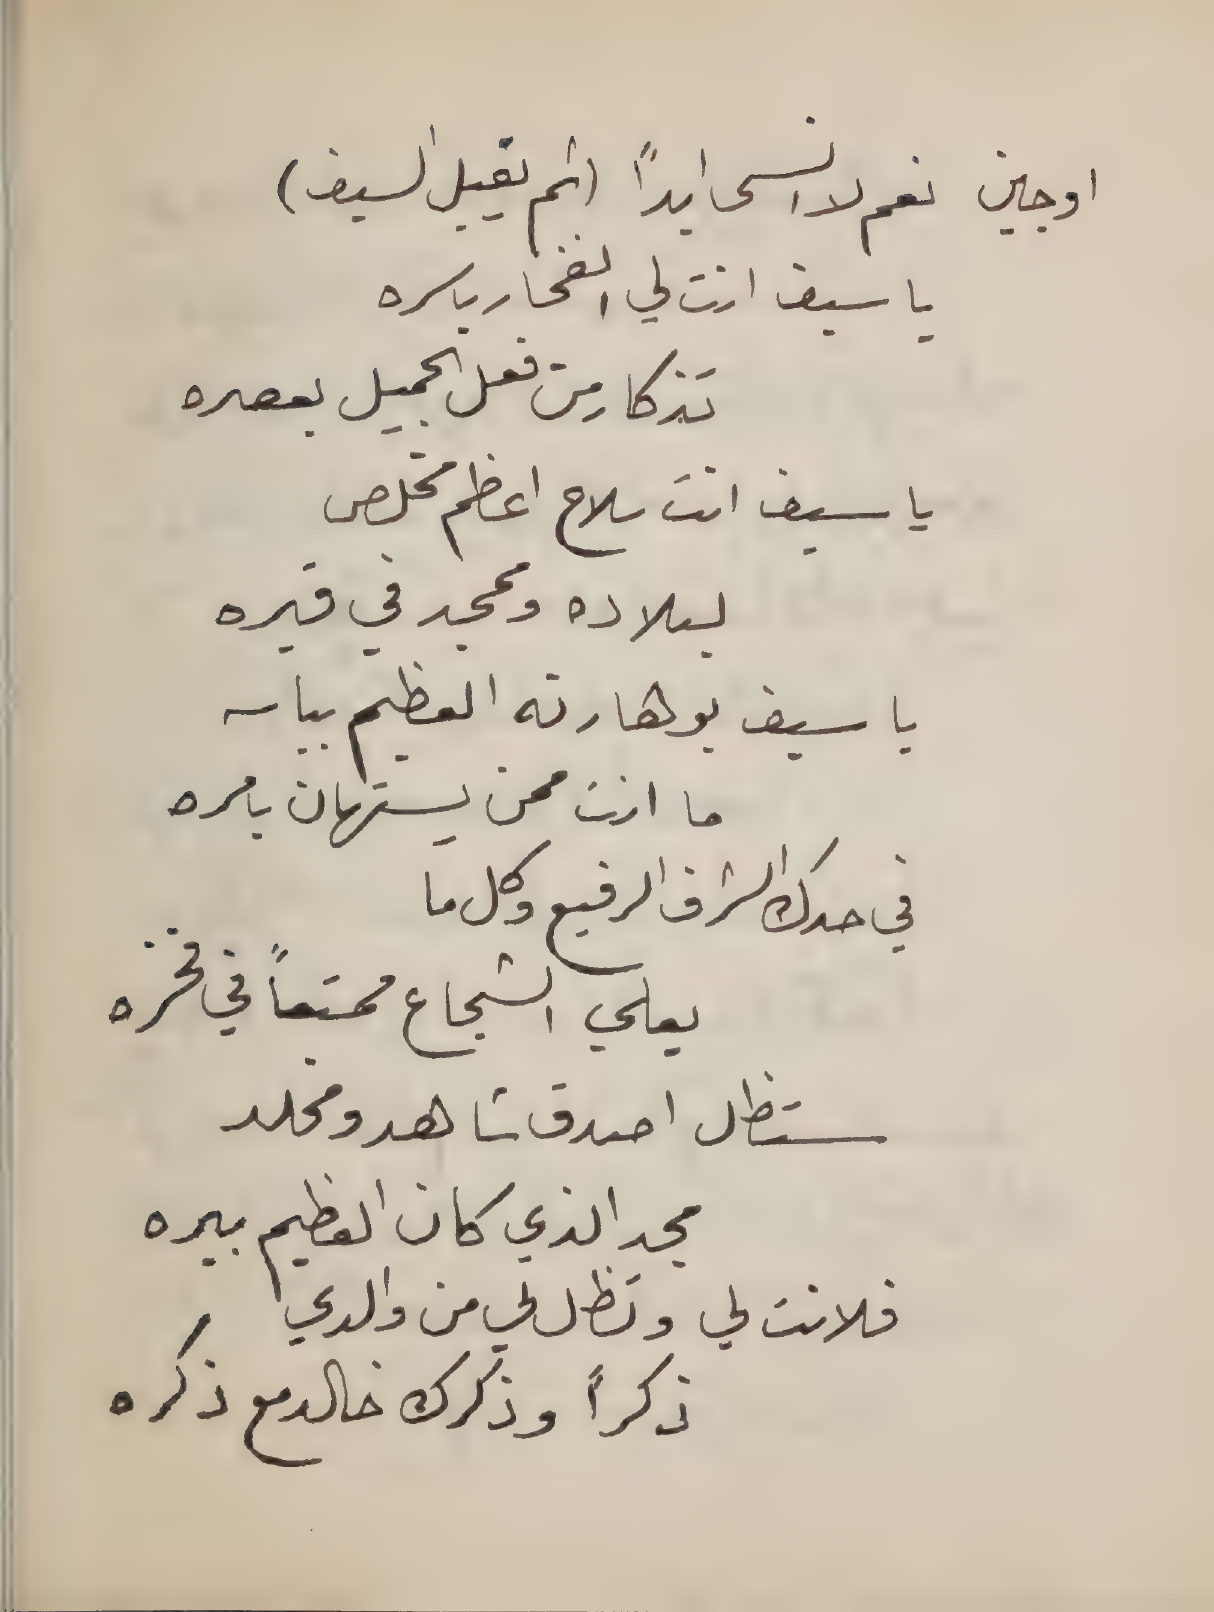 اوجين نعم لا انسى ابداً (ثم يقبل السيف)
يا سيف انت لي الفخار باسره
تذكار من فعل الجميل بعصره
يا سيف انت سلاح اعظم مخلص
لبلاده وممجد في قبره
يا سيف بوهارنه العظيم بباسه
ما انت ممن يستهان بامره
في حدك الشرف الرفيع وكل ما
يعلي الشجاع ممتعاً في فخره
ستظل اصدق شاهد ومخلد
مجد الذي كان العظيم ببره
فلانت لي وتظل لي من والدي
ذكراً وذكرك خالد مع ذكره